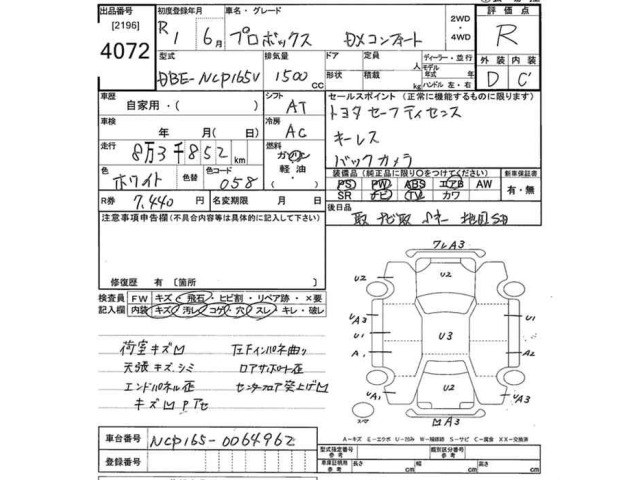 出品番号 初度登録年月 車名・グレード 2WD・4WD 評価点
[2196]
4072 R1 6月 プロボックス DXコンフォート R
型式 排気量 ドア 定員 ディーラー・並行 外装 内装
DBE-NCP165V 1500cc 形状 積載 人 kg モデル年式 年 ハンドル 左・右 D C'
車歴 自家用・( ) シフト AT セールスポイント (正常に機能するものに限ります)
車検 年 月( ) 冷房 AC トヨタセーフティセンス
走行 8万3千852km 燃料 ガソリン・軽油・ キーレス
バックカメラ
色 ホワイト 色替 色コード 058 装備品 (純正品に限り○をつけてください) 新車保証書
PS PW ABS エアB AW 有・無
SR ナビ TV カワ
R券 7,440 名変期限 月 日 後日品
注意事項申告欄(不具合内容等は具体的に記入して下さい) 取 ナビ取
修復歴 有 [箇所 ]
検査員記入欄 FW キズ・飛石・ヒビ割・リペア跡・×要
内装 キズ・汚レ・コゲ・穴・スレ・キレ・破レ
荷室キズ 左Fインパネ曲り
天張キズ、シミ ロアサポート歪
エンドパネル歪 センターフロア突上げ
キズ Pアセ
フレA3
U2
U2 U2
UA3 U1
U1 U3 U1
A1 A2
U2 UA3
UA3
A3
スペア
A-キズ E-エクボ U-凹み W-補修跡 S-サビ C-腐食 XX-交換済
車台番号 NCP165-0064962
登録番号
型式指定番号 類別区分番号
車庫証明用参考 長さ cm 幅 cm 高さ cm